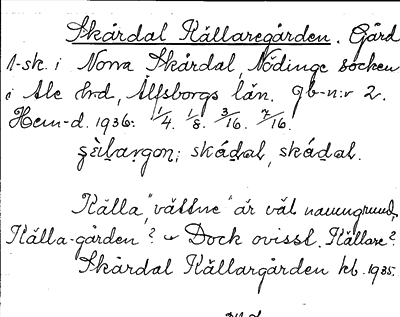 Skårdal Källaregården. Gård
1-sk. i Norra Skårdal, Nödinge socken
i Ale hrd, Älfsborgs län. gb-n:r 2.
Hem-d. 1936: 1/4. 1/8. 3/16. 7/16.
skådal, skådal.
Källa "vattne" är väl namngrund,
Källa-gården? Dock ovisst. Källare?
Skårdal Källargården kb. 1935.